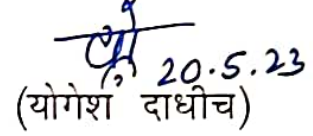 20.5.23
(योगेश दाधीच)